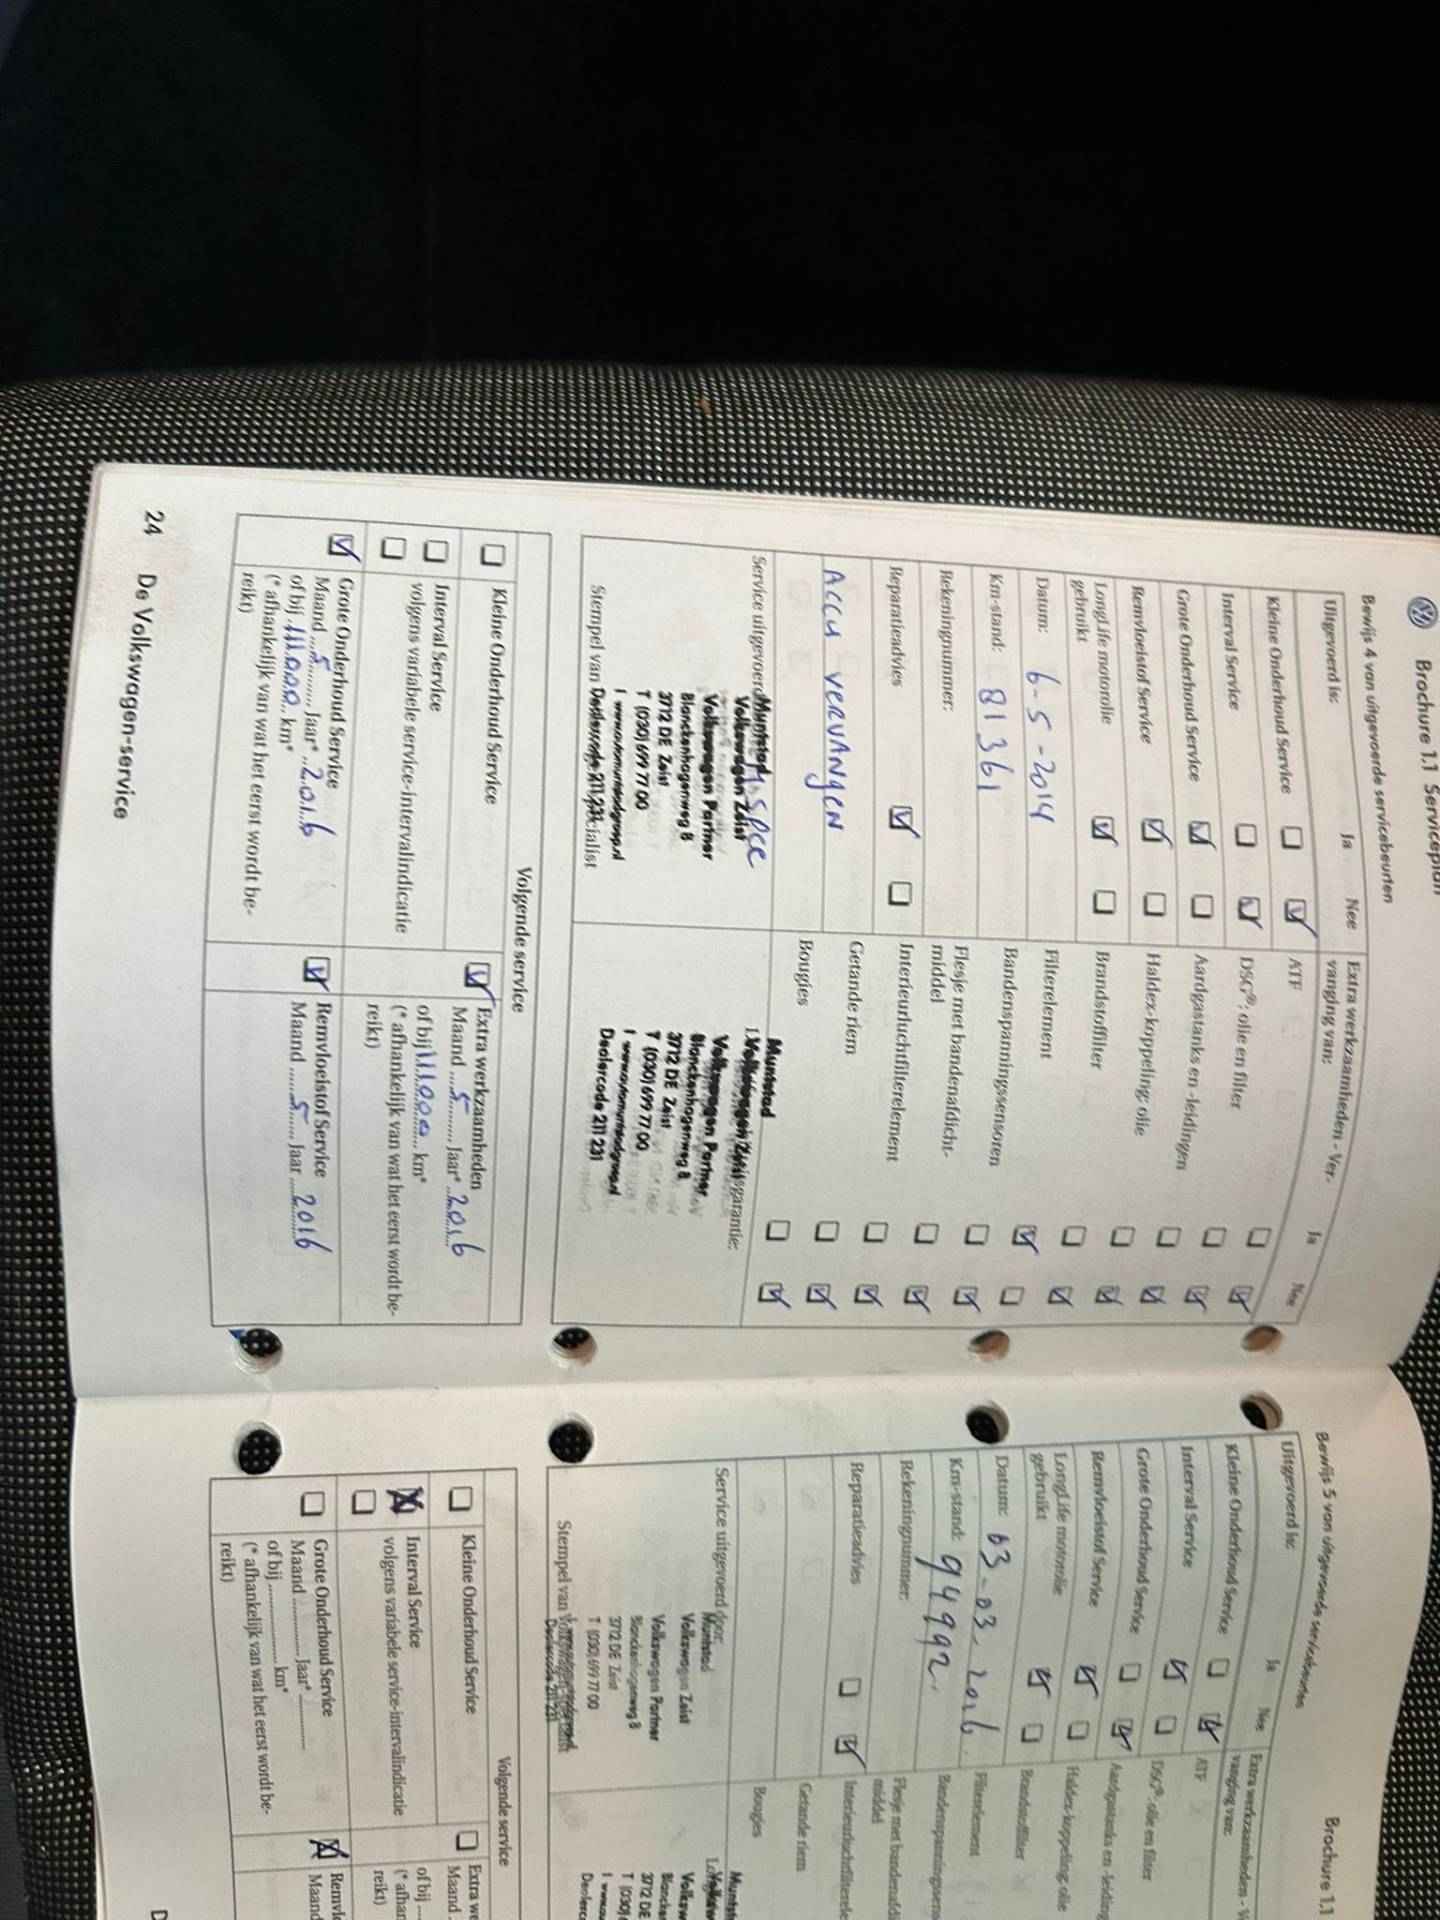 Brochure 1.1 Serviceplan
Bewijs 4 van uitgevoerde servicebeurten
Uitgevoerd is: Ja Nee
Kleine Onderhoud Service
Interval Service
Grote Onderhoud Service
Remvloeistof Service
LongLife motorolie
gebruikt
Datum: 6-5-2014
Km-stand: 81361
Rekeningnummer:
Reparatieadvies
Accu vervangen
Service uitgevoerd
Muntstad
Volkswagen Zeist
Volkswagen Partner
Blanckenhagenweg 8
3712 DE Zeist
T (030) 699 77 00
I www.automuntstadgroep.nl
Dealercode 211 231
Stempel van
Extra werkzaamheden - Ver-
vanging van: Ja Nee
ATF
DSG®; olie en filter
Aardgastanks en -leidingen
Haldex-koppeling: olie
Brandstoffilter
Filterelement
Bandenspanningssensoren
Flesje met bandenafdicht-
middel
Interieurluchtfilterelement
Getande riem
Bougies
garantie:
Muntstad
Volkswagen Zeist
Volkswagen Partner
Blanckenhagenweg 8
3712 DE Zeist
T (030) 699 77 00
I www.automuntstadgroep.nl
Dealercode 211 231
Volgende service
Kleine Onderhoud Service
Interval Service
volgens variabele service-intervalindicatie
Grote Onderhoud Service
Maand 5 Jaar* 2016
of bij 111000 km*
(* afhankelijk van wat het eerst wordt be-
reikt)
Extra werkzaamheden
Maand 5 Jaar* 2016
of bij 111000 km*
(* afhankelijk van wat het eerst wordt be-
reikt)
Remvloeistof Service
Maand 5 Jaar 2016
24 De Volkswagen-service
Brochure 1.1
Bewijs 5 van uitgevoerde servicebeurten
Uitgevoerd is: Ja Nee
Kleine Onderhoud Service
Interval Service
Grote Onderhoud Service
Remvloeistof Service
LongLife motorolie
gebruikt
Datum: 03-03-2016
Km-stand: 94992.
Rekeningnummer:
Reparatieadvies
Service uitgevoerd door:
Muntstad
Volkswagen Zeist
Volkswagen Partner
Blanckenhagenweg 8
3712 DE Zeist
T (030) 699 77 00
Dealercode 211 231
Stempel van
Extra werkzaamheden - V
vanging van:
ATF
DSG®; olie en filter
Aardgastanks en -leiding
Haldex-koppeling: olie
Brandstoffilter
Filterelement
Bandenspanningssens
Flesje met bandenafdi
middel
Interieurluchtfilterele
Getande riem
Bougies
Muntst
Volksw
Blancke
3712 DE
T (030)
Dealerc
Volgende service
Kleine Onderhoud Service
Interval Service
volgens variabele service-intervalindicatie
Grote Onderhoud Service
Maand Jaar*
of bij km*
(* afhankelijk van wat het eerst wordt be-
reikt)
Extra we
Maand
of bij
(* afhan
reikt)
Remvl
Maand
D